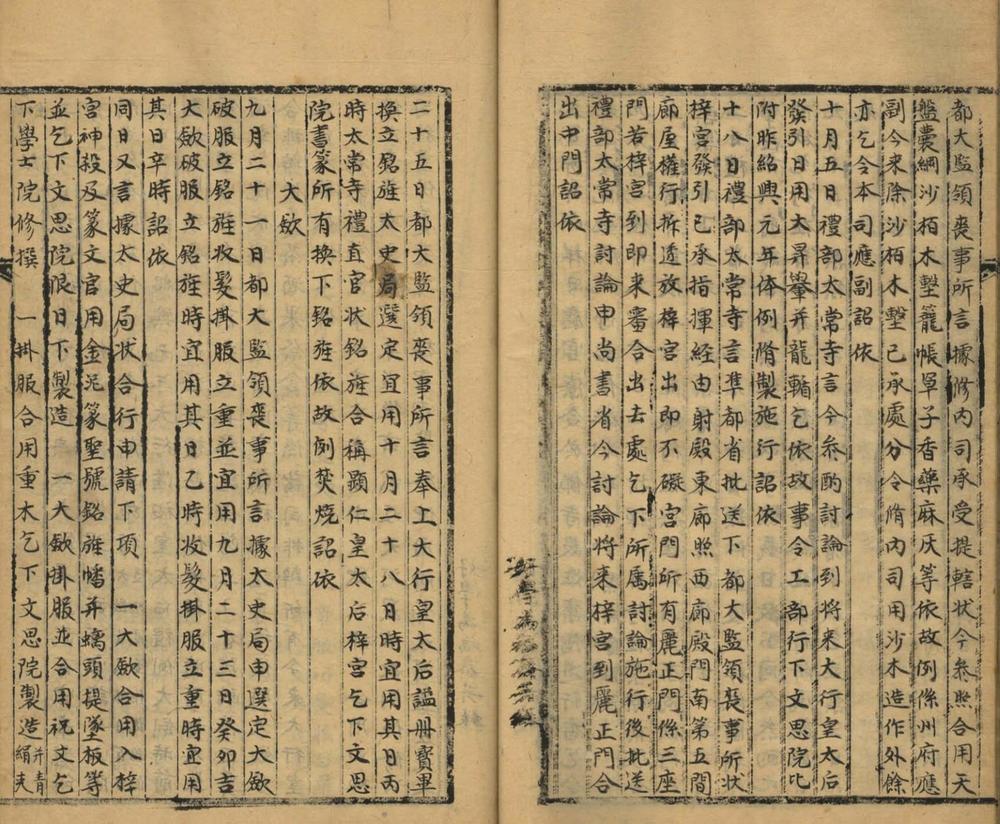 都大監領喪事所言據修內司承受提轄狀今叅照合用天
盤囊綱沙栢木墼籠帳單子香藥麻灰等依故例係州府應
副今來除沙栢木墼已承處分令脩內司用沙木造作外餘
亦乞令本司應副詔依
十月五日禮部太常寺言今叅酌討論到將來大行皇太后
發引日用大昇轝并龍輴乞依故事令工部行下文思院比
附昨紹興元年体例脩製施行詔依
十八日禮部太常寺言準都省批送下都大監領喪事所狀
梓宮發引已承指揮經由射殿東廊照西廊殿門南第五間
廊屋權行拆透放梓宮出即不礙宮門所有麗正門係三座
門若梓宮到即未審合出去處乞下所屬討論施行後批送
禮部太常寺討論申尚書省今討論將來梓宮到麗正門合
出中門詔依
二十五日都大監領喪事所言奉上大行皇太后謚冊寶畢
換立銘旌太史局選定宜用十月二十八日時宜用其日丙
時太常寺禮直官狀銘旌合稱顯仁皇太后梓宮乞下文思
院書篆所有換下銘旌依故例焚燒詔依
大斂
九月二十一日都大監領喪事所言據太史局申選定大斂
破服立銘旌收髮掛服立重並宜用九月二十三日癸卯吉
大斂破服立銘旌時宜用其日乙時收髮掛服立重時宜用
其日辛時詔依
同日又言據太史局狀合行申請下項 一大斂合用入梓
宮神殺及篆文官用金泥篆聖號銘旌幡并蠕頭提墜板等
並乞下文思院限日下製造 一大斂掛服並合用祝文乞
下學士院修撰 一掛服合用重木乞下文思院製造并青絹夫